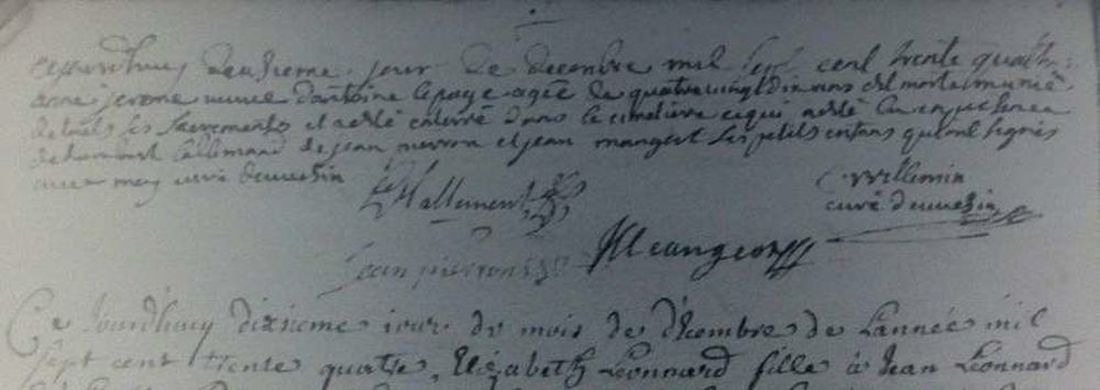 cejourdhuy deuxieme jour de decembre mil sept cent trente quatre
anne jerome veuve dantoine lepage agée de quatrevingt dix ans est morte munie
de touts les sacrements et a eté enterré dans le cimetiere ce qui a eté en presence
de humbert lallemand de jean pierron et jean mangeot ses petits enfans qui ont signés
avec moy curé
L Hallement
C Willemin
curé
jean pierron
J Mangeon
Ce Jourdhuy dixieme iour du mois de décembre de Lannée mil
sept cent trente quatre, Elizabeth Leonnard fille à Jean Léonnard